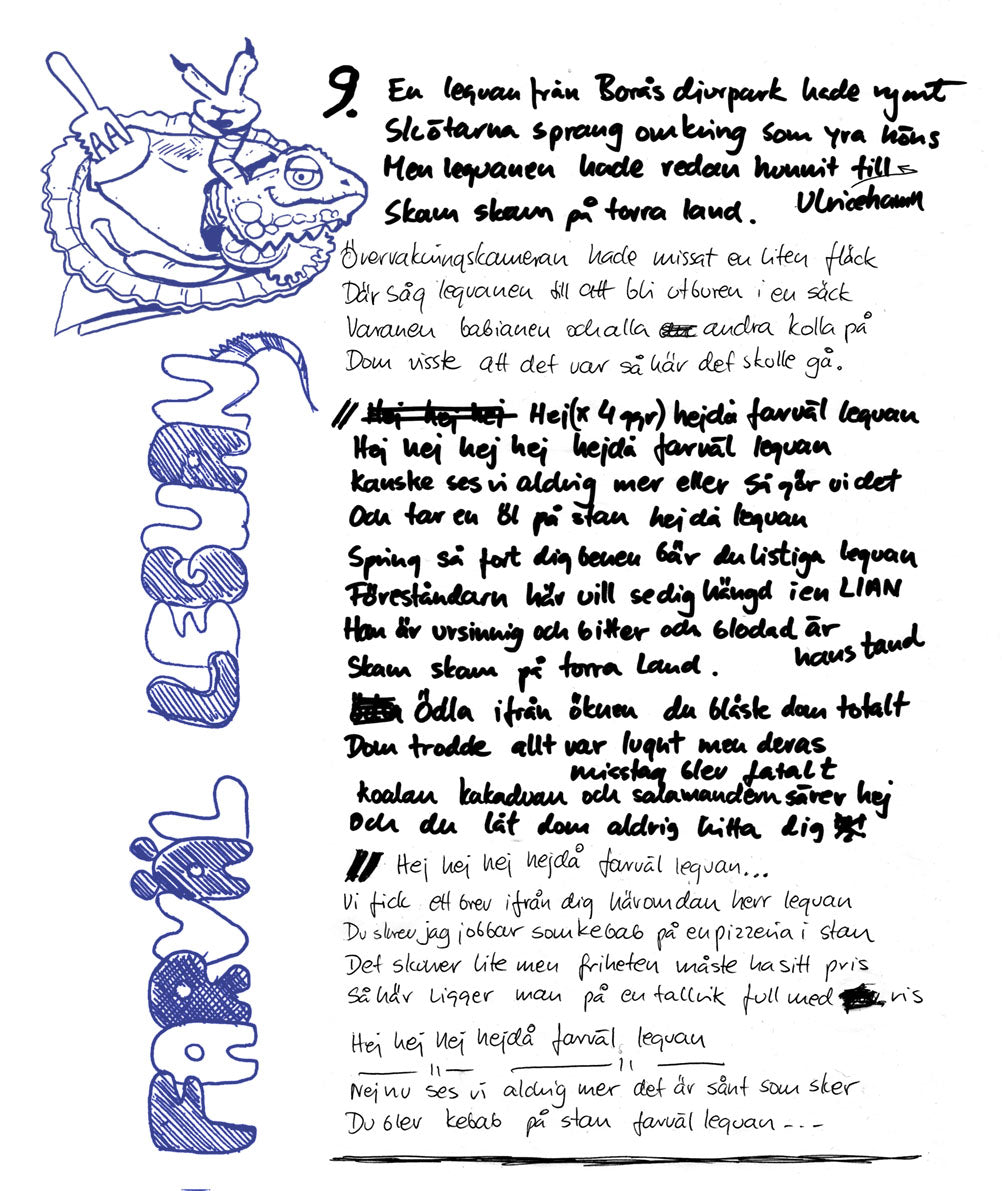 FARVÄL LEGUAN
9. En leguan från Borås djurpark hade rymt
Skötarna sprang omkring som yra höns
Men leguanen hade redan hunnit till
Ulricehamn
Skam skam på torra land.
Övervakningskameran hade missat en liten fläck
Där såg leguanen till att bli utburen i en säck
Varanen babianen och alla andra kolla på
Dom visste att det var så här det skulle gå.
// Hej hej hej Hej (x 4 ggr) hejdå farväl leguan
Hej hej hej hej hejdå farväl leguan
Kanske ses vi aldrig mer eller så gör vi det
Och tar en öl på stan hejdå leguan
Spring så fort dig benen bär du listiga leguan
Föreståndarn här vill se dig hängd i en LIAN
Han är ursinnig och bitter och blodad är
hans tand
Skam skam på torra Land.
Ödla ifrån öknen du blåste dom totalt
Dom trodde allt var lugnt men deras
misstag blev fatalt
Koalan kakaduan och salamandern säger hej
Och du låt dom aldrig hitta dig
// Hej hej hej hejdå farväl leguan...
Vi fick ett brev ifrån dig häromdan herr leguan
Du skrev jag jobbar som kebab på en pizzeria i stan
Det skaver lite men friheten måste ha sitt pris
Så här ligger man på en tallrik full med ris
Hej hej hej hejdå farväl leguan
— 11 — — 11 —
Nej nu ses vi aldrig mer det är sånt som sker
Du blev kebab på stan farväl leguan - - -